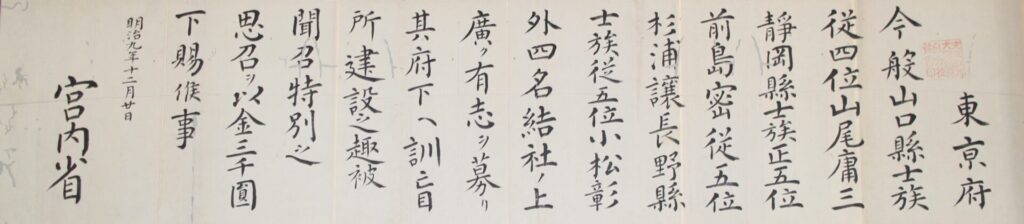 東京府
今般山口縣士族
従四位山尾庸三
静岡縣士族正五位
前島密従五位
杉浦譲長野縣
士族従五位小松彰
外四名結社ノ上
廣ク有志ヲ募リ
其府下ヘ訓盲
所建設之趣被
聞召特別之
思召ヲ以金三千圓
下賜候事
明治九年十二月廿日
宮内省